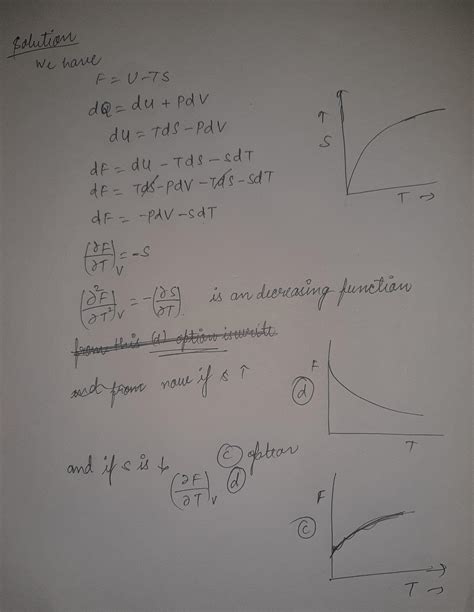 Solution
We have
F = U - TS
dQ = du + PdV
du = TdS - PdV
dF = du - TdS - SdT
dF = TdS - PdV - TdS - SdT
dF = -PdV - SdT
(∂F/∂T)V = -S
(∂²F/∂T²)V = -(∂S/∂T) is an decreasing function
from this (d) option is write
and from now if s ↑
and if s is ↓ (c) option
(∂F/∂T)V (d)
↑
S
T →
F
(d)
T
F
(c)
T →